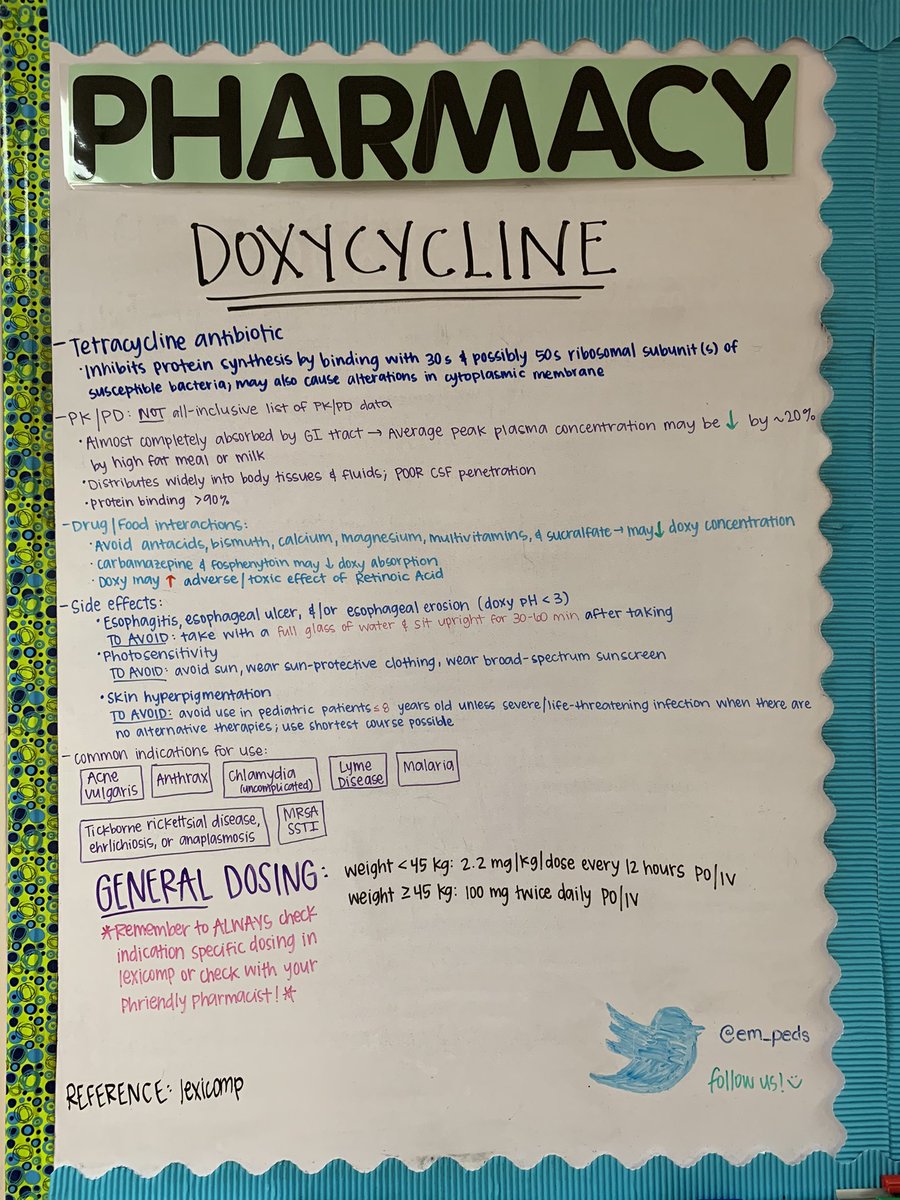 PHARMACY
DOXYCYCLINE
- Tetracycline antibiotic
• Inhibits protein synthesis by binding with 30s & possibly 50s ribosomal subunit(s) of
susceptible bacteria; may also cause alterations in cytoplasmic membrane
- PK/PD: NOT all-inclusive list of PK/PD data
• Almost completely absorbed by GI tract → Average peak plasma concentration may be ↓ by ~20%
by high fat meal or milk
• Distributes widely into body tissues & fluids; POOR CSF penetration
• protein binding >90%
- Drug/Food interactions:
• Avoid antacids, bismuth, calcium, magnesium, multivitamins, & sucralfate → may ↓ doxy concentration
• Carbamazepine & fosphenytoin may ↓ doxy absorption
• Doxy may ↑ adverse/toxic effect of Retinoic Acid
- Side effects:
• Esophagitis, esophageal ulcer, &/or esophageal erosion (doxy pH < 3)
TO AVOID: take with a full glass of water & sit upright for 30-60 min after taking
• Photosensitivity
TO AVOID: avoid sun, wear sun-protective clothing, wear broad-spectrum sunscreen
• Skin hyperpigmentation
TO AVOID: avoid use in pediatric patients ≤ 8 years old unless severe/life-threatening infection when there are
no alternative therapies; use shortest course possible
- Common indications for use:
Acne
vulgaris
Anthrax
Chlamydia
(uncomplicated)
Lyme
Disease
Malaria
Tickborne rickettsial disease,
ehrlichiosis, or anaplasmosis
MRSA
SSTI
GENERAL DOSING:
weight < 45 kg: 2.2 mg/kg/dose every 12 hours PO/IV
weight ≥ 45 kg: 100 mg twice daily PO/IV
*Remember to ALWAYS check
indication specific dosing in
lexicomp or check with your
phriendly pharmacist!*
@em_peds
follow us!
REFERENCE: lexicomp